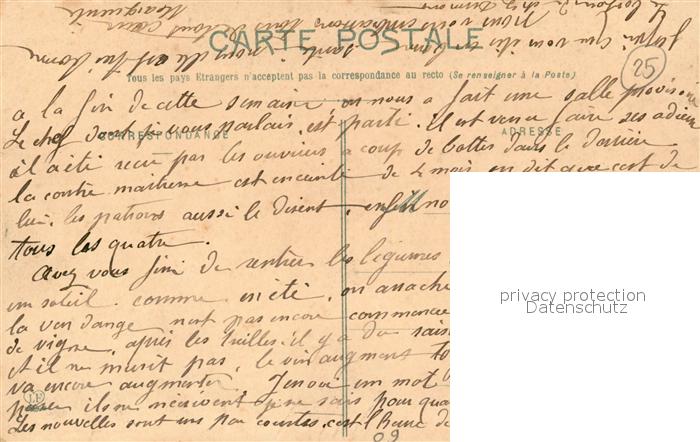 J'espère que vous êtes en bonne santé, nous elle est très bonne
Nous vous embrassons tous de tout cœur
Marguerite
CARTE POSTALE
25
Tous les pays Etrangers n'acceptent pas la correspondance au recto (Se renseigner à la Poste)
CORRESPONDANCE
ADRESSE
a la fin de cette semaine on nous a fait une salle provisoire
Le chef dont je vous parlais est parti. Il est venu faire ses adieux
il a été reçu par les ouvriers a coup de bottes dans le derrière
la contre maitresse est enceinte de 4 mois on dit que c'est de
lui, les patrons aussi le disent. enfin no
tous les quatre.
Avez vous fini de rentrer les légumes
un soleil comme en été, on arrache
la vendange n'est pas encore commencée
de vigne, après les treilles il y a du rais
et il ne murit pas, le vin augment
va encore augmenter. J'envoie un mot
ils ne m'écrivent pour qu
Les nouvelles sont un peu courtes c'est l'heure de
09
LF
privacy protection
Datenschutz